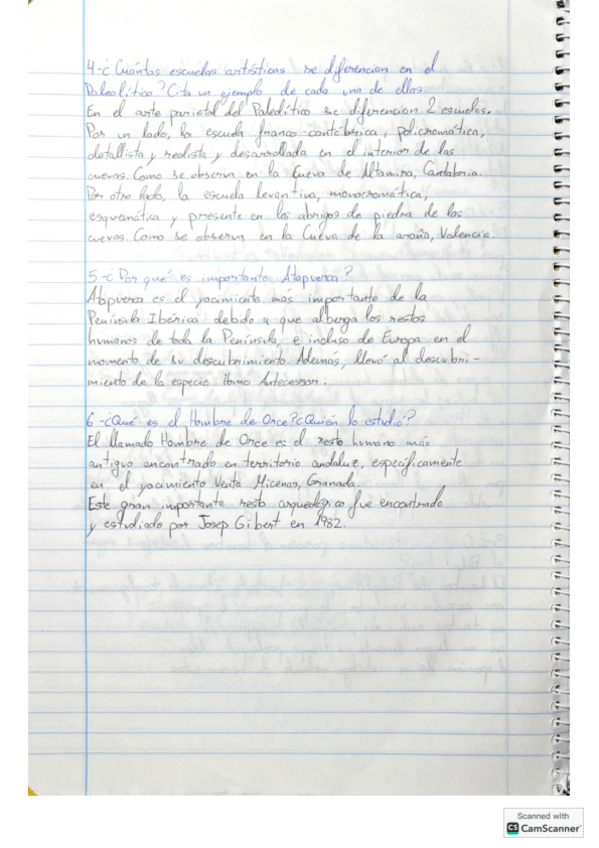 4-¿Cuántas escuelas artísticas se diferencian en el
Paleolítico? Cita un ejemplo de cada una de ellas.
En el arte parietal del Paleolítico se diferencian 2 escuelas.
Por un lado, la escuela franco-cantábrica, policromática,
detallista y realista y desarrollada en el interior de las
cuevas. Como se observa en la Cueva de Altamira, Cantabria.
Por otro lado, la escuela levantina, monocromática,
esquemática y presente en los abrigos de piedra de las
cuevas. Como se observa en la Cueva de la araña, Valencia.
5-¿Por qué es importante Atapuerca?
Atapuerca es el yacimiento más importante de la
Península Ibérica debido a que alberga los restos
humanos de toda la Península, e incluso de Europa en el
momento de su descubrimiento. Además, llevó al descubri-
miento de la especie Homo Antecessor.
6-¿Qué es el Hombre de Orce? ¿Quién lo estudió?
El llamado Hombre de Orce es el resto humano más
antiguo encontrado en territorio andaluz, específicamente
en el yacimiento Venta Micenas, Granada.
Este gran importante resto arqueológico fue encontrado
y estudiado por Josep Gibert en 1982.
Scanned with
CS CamScanner